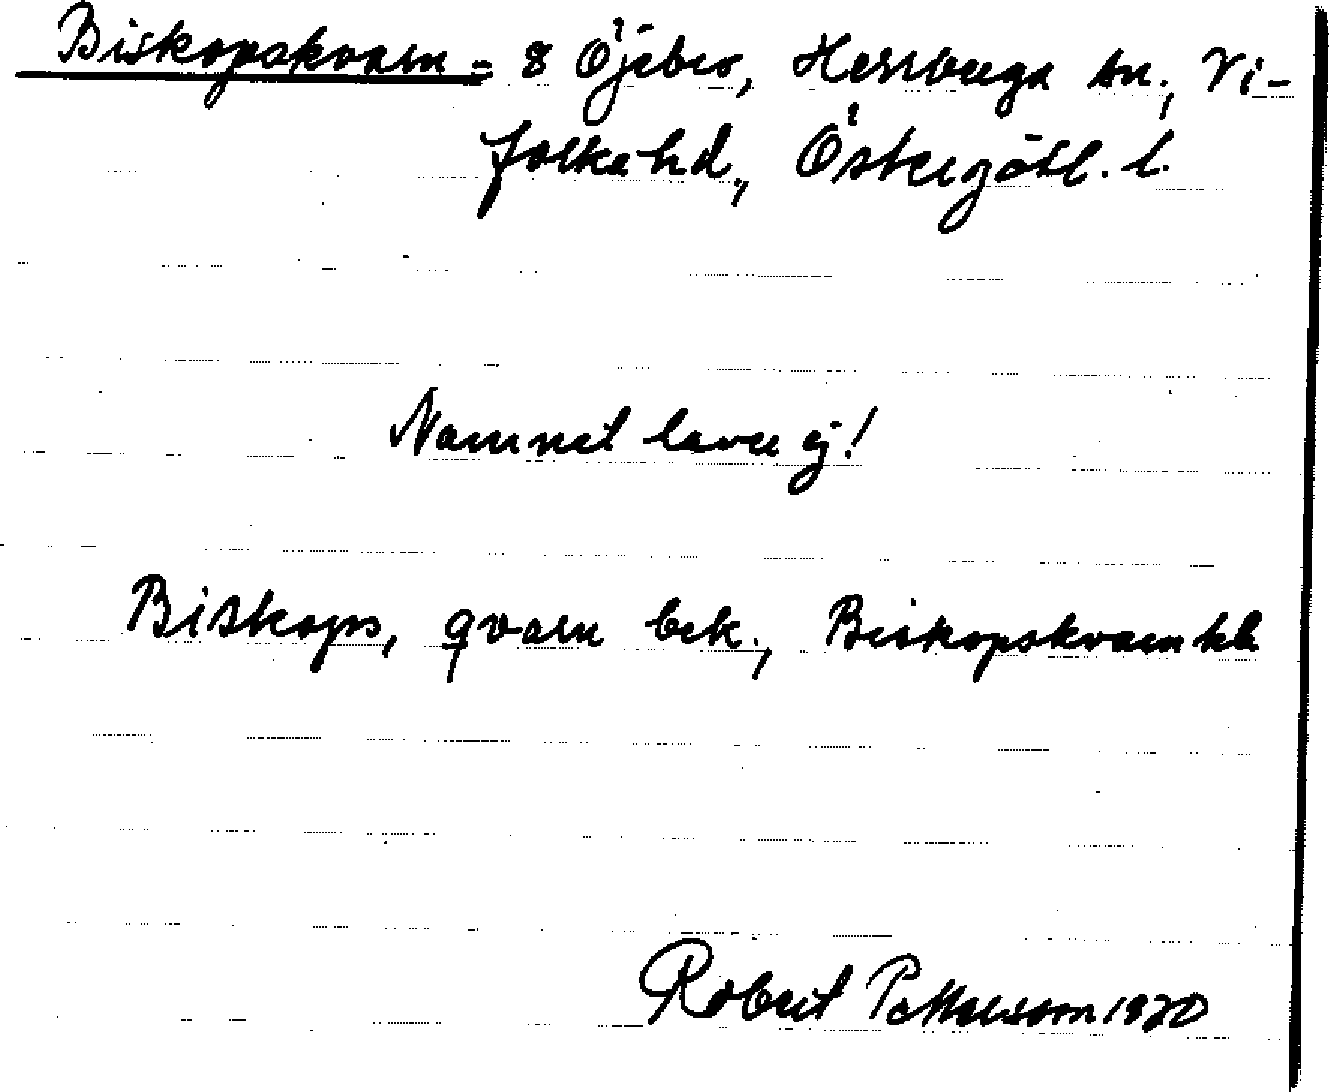 Biskopskvarn = 8 Öjebro, Herrberga sn., Vi-
folka hd., Östergötl. l.
Namnet lever ej!
Biskops, qvarn bek., Biskopskvarn hb
Robert Pettersson 1920